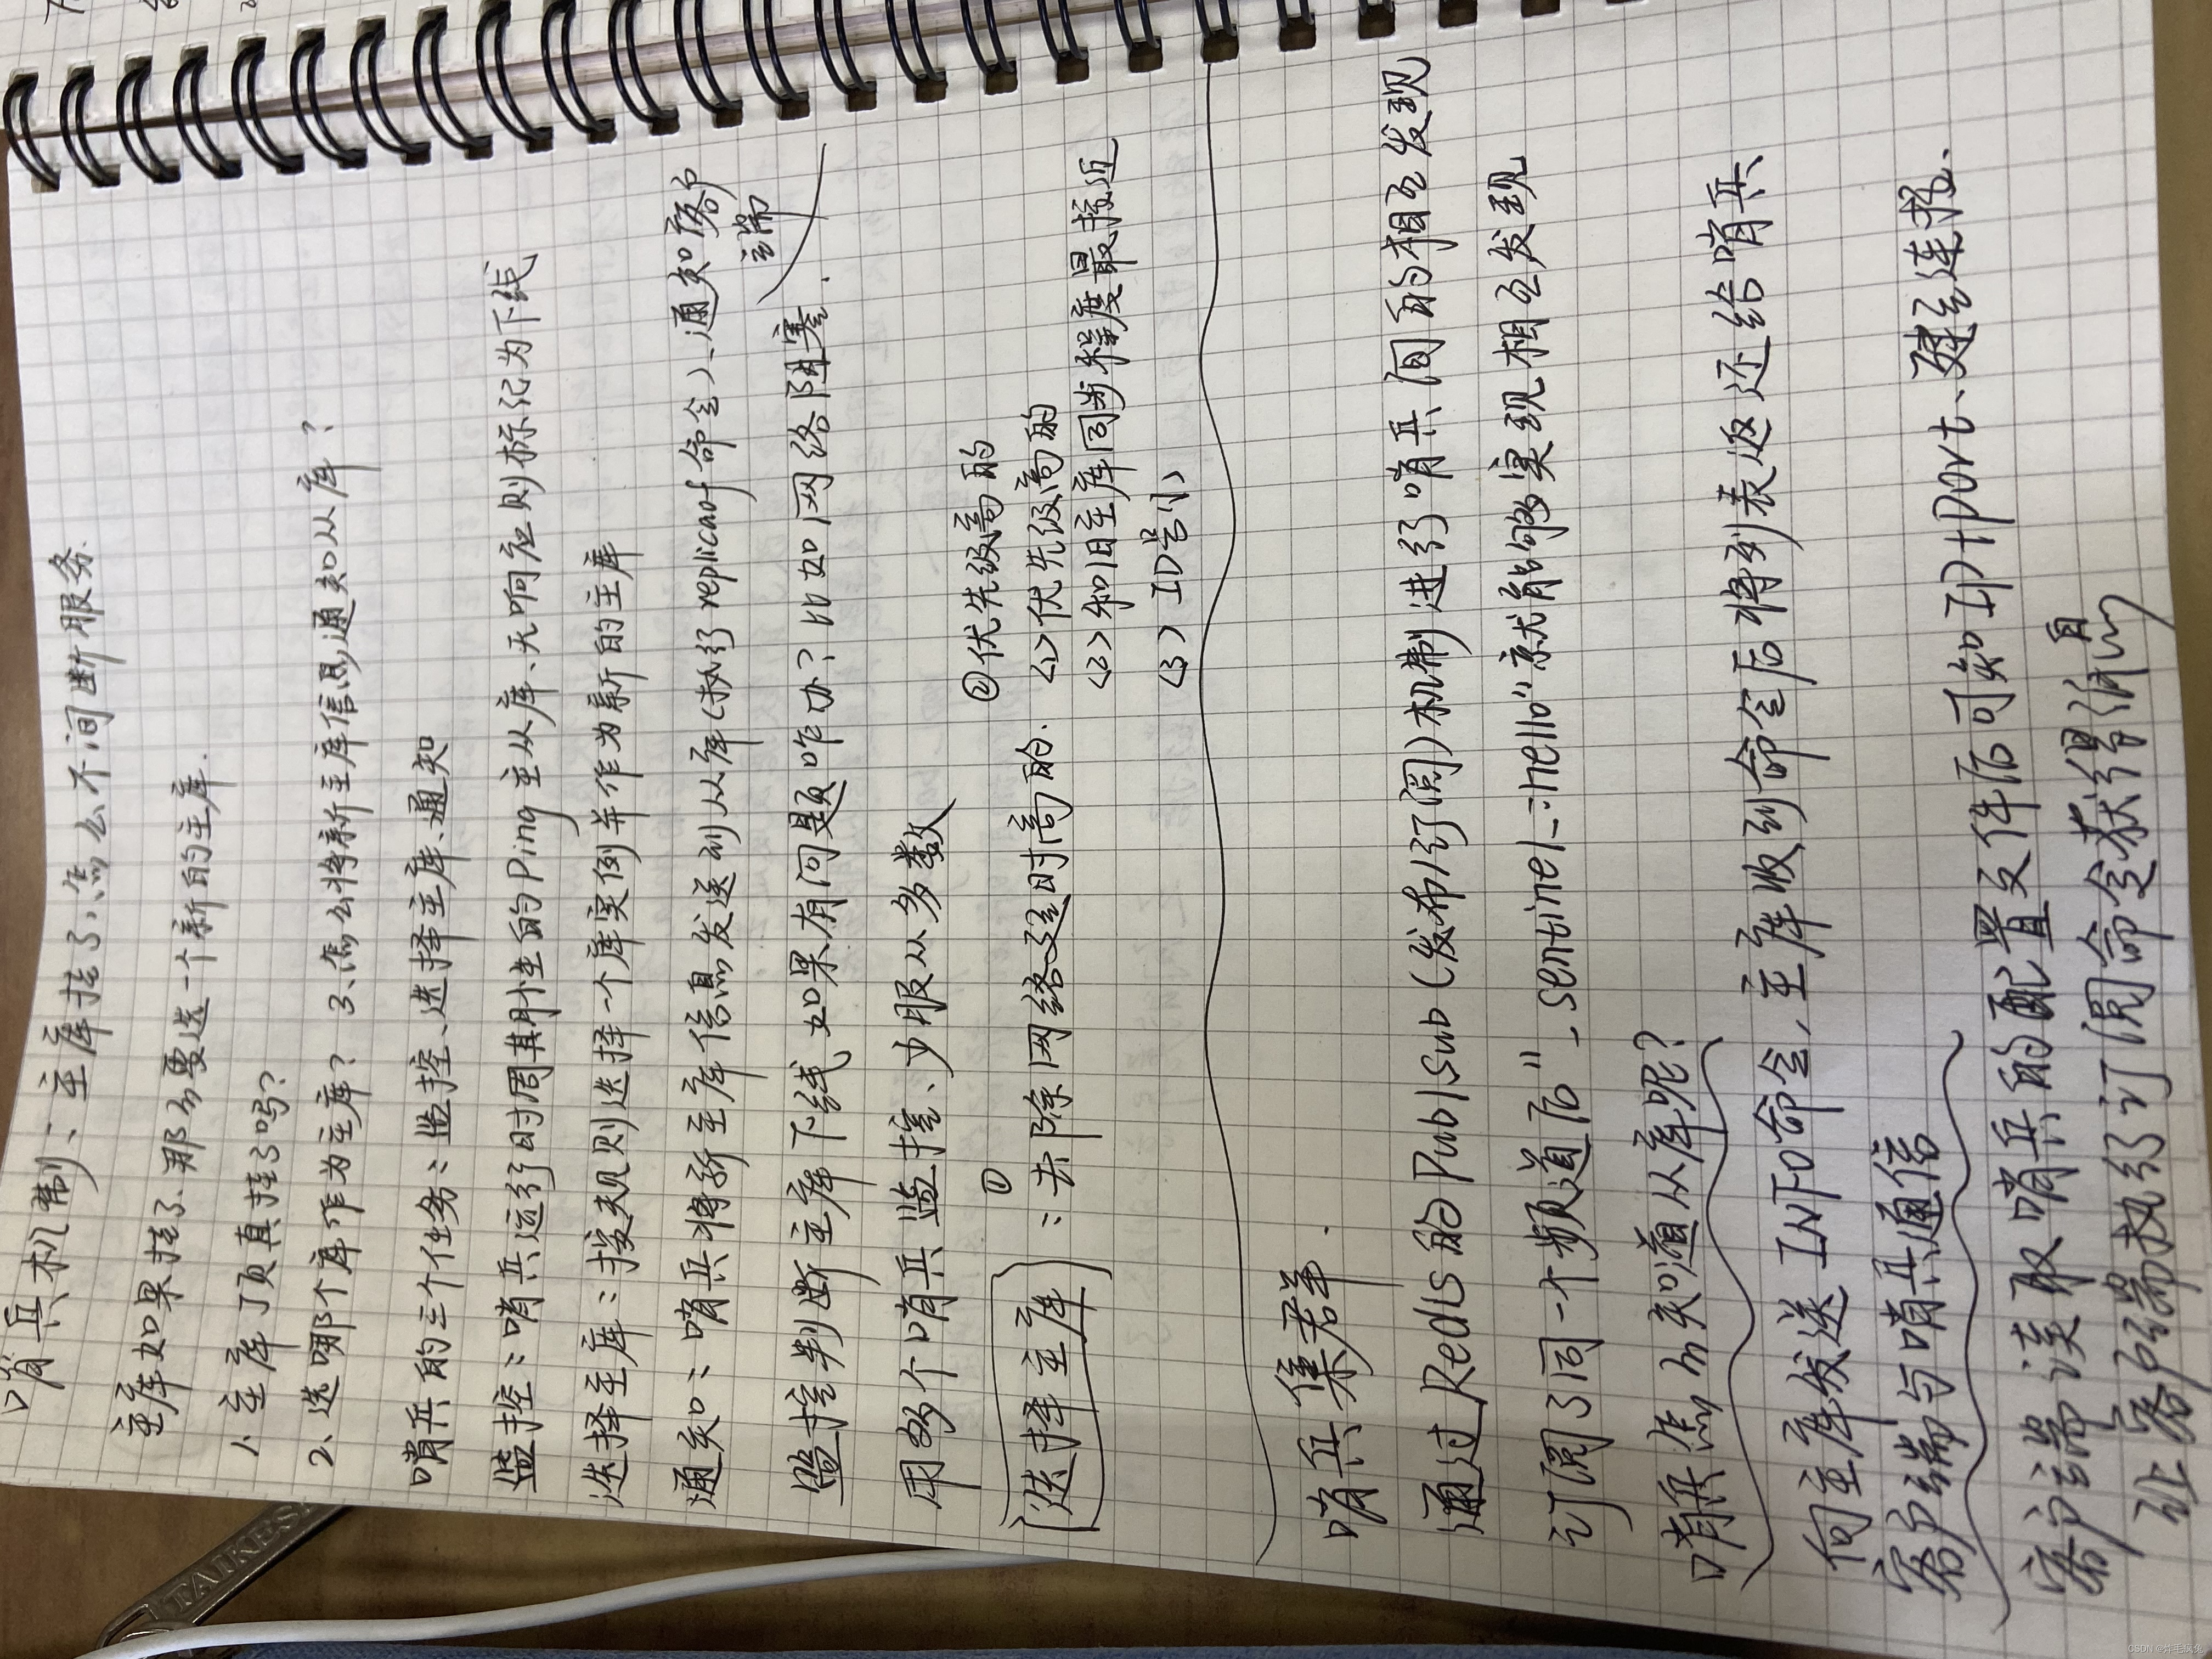 哨兵机制：主库挂了，怎么不间断服务.
主库如果挂了、那么要选一个新的主库.
1、主库了页真挂了吗？
2、选哪个库作为主库？ 3、怎么将新主库信息通知从库？
哨兵的三个任务：监控、选择主库、通知
监控：哨兵运行时周期性的Ping主从库、无响应则标记为下线
选择主库：按规则选择一个库实例并作为新的主库
通知：哨兵将新主库信息发送到从库（执行replicaof命令）、通知客户端
监控判断主库下线，如果有问题咋办？比如网络阻塞.
用多个哨兵监控、少服从多数
选择主库：①去除网络延时高的. ②优先级高的
<1> 优先级高的
<2> 和旧主库同步程度最接近
<3> ID号小
哨兵集群.
通过Redis的Pub/Sub（发布/订阅）机制进行哨兵间的相互发现
订阅了同一个频道后"_sentinel_:hello"就能够实现相互发现
哨兵怎么知道从库呢？
向主库发送INFO命令，主库收到命令后将列表返还给哨兵
客户端与哨兵通信
客户端读取哨兵的配置文件后可知IP+Port、建立连接.
让客户端执行订阅命令获得消息
TAIKES
CSDN